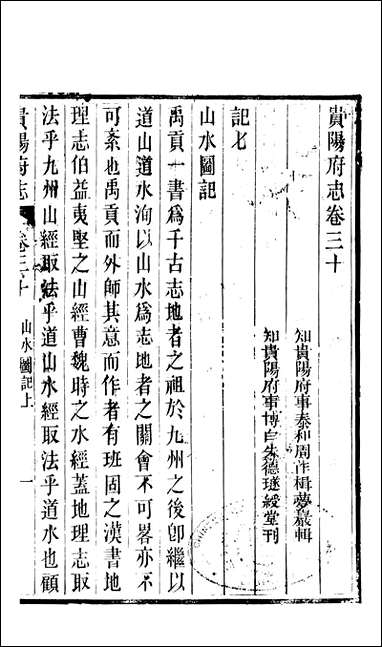 貴陽府志卷三十
知貴陽府事泰和周作楫夢巖輯
知貴陽府事博白朱德璲綬堂刊
記七
山水圖記
禹貢一書爲千古志地者之祖於九州之後卽繼以
道山道水洵以山水爲志地者之關會不可畧亦不
可紊也禹貢而外師其意而作者有班固之漢書地
理志伯益夷堅之山經曹魏時之水經蓋地理志取
法乎九州山經取法乎道山水經取法乎道水也顧
貴陽府志 卷三十 山水圖記上 一